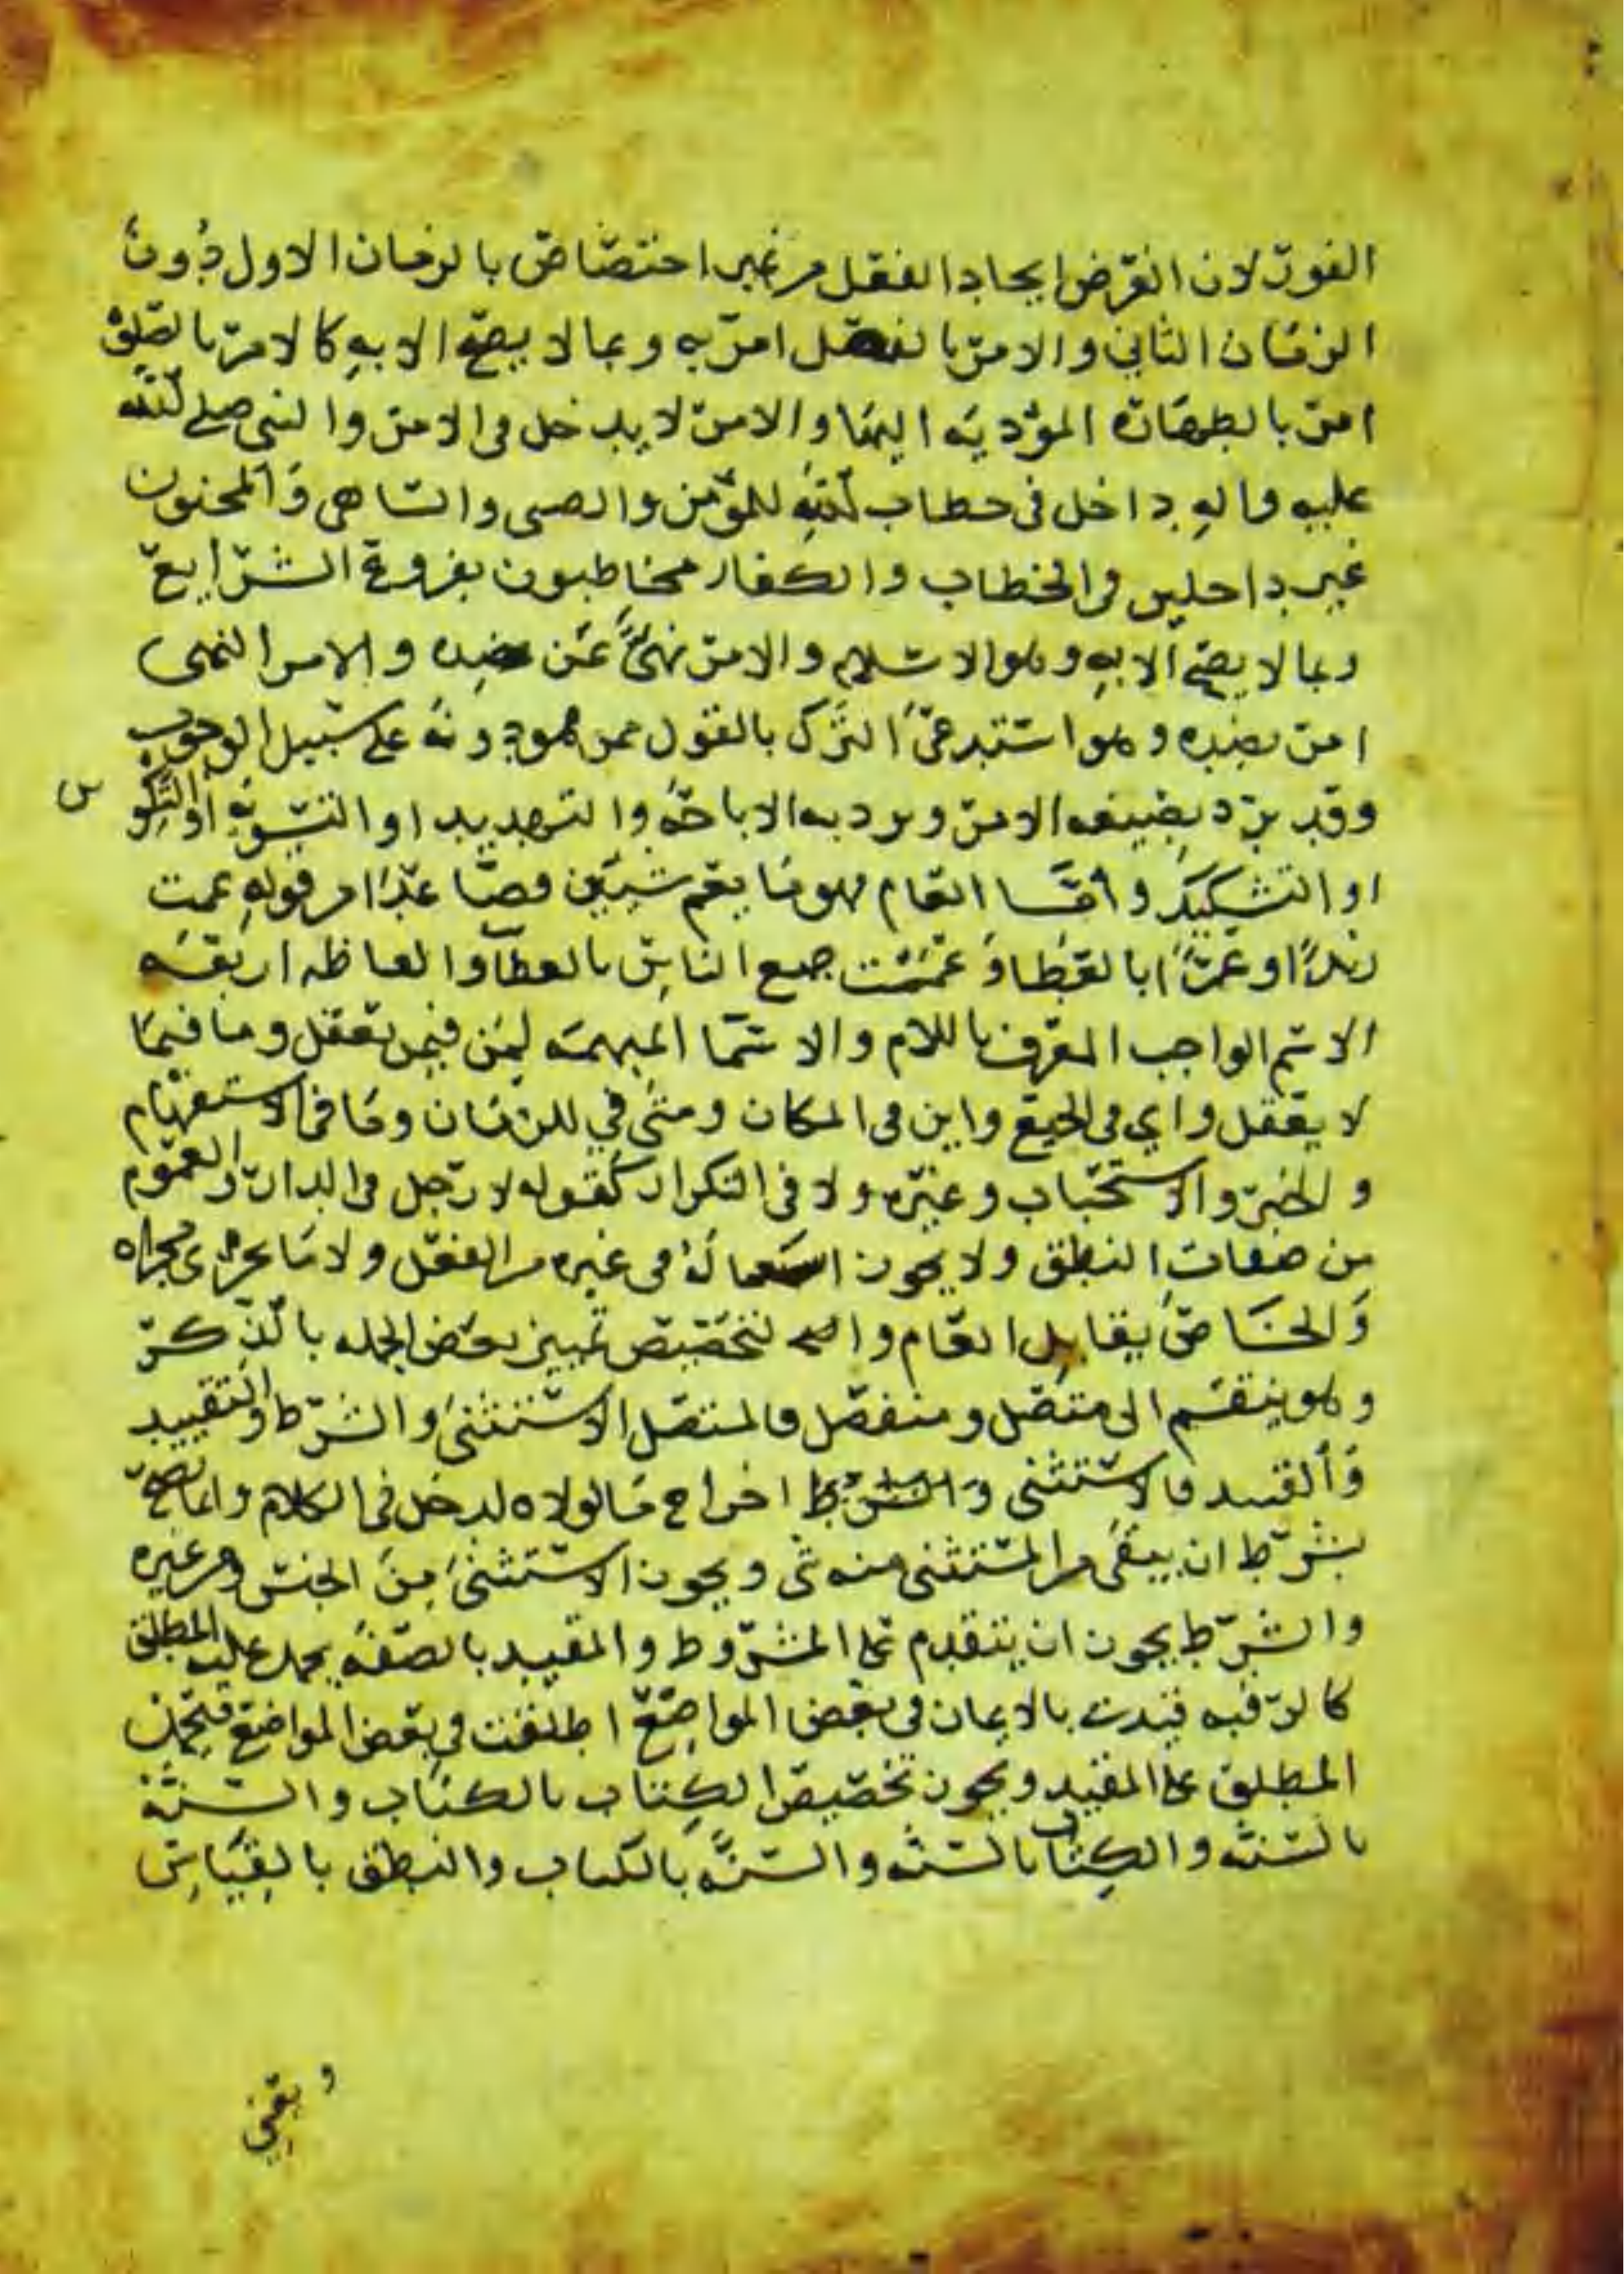 الفور لان الغرض ايجاد الفعل من غير اختصاص بالزمان الاول دون
الزمان الثاني والامر بالفعل امر به وبما لا يصح الا به كالامر بالصلوة
امر بالطهارة المؤدية اليها والامر لا يدخل في الامر والنبي صلى الله
عليه واله داخل في خطاب الله للمؤمن والصبي والساهي والمجنون
غير داخلين في الخطاب والكفار مخاطبون بفروع الشرايع
وبما لا يصح الا به وهو الاسلام والامر نهي عن ضده والامر النهي
امر بضده وهو استدعى الترك بالقول ممن هو دونه على سبيل الوجوب
وقد يرد بصيغه الامر ويرد به الاباحة والتهديد او التسوية او التكوين
او التشكيك واما العام فهو ما يعم شيئين فصاعدا من قوله عمت
زيدا او عمرا بالعطا وعممت جميع الناس بالعطا والفاظه اربعه
الاسم الواحد المعرف باللام والاسما المبهمه لمن فيمن يعقل وما فيما
لا يعقل واي في الجميع واين في المكان ومتى في للزمان وما في الاستفهام
والخبر والاستحباب وغيره ولا في التكرار كقوله لا رجل في الدار والعموم
من صفات النطق ولا يجوز استعماله في غيره من الفعل ولا ما يجري مجراه
والخاص يقابل العام والتخصيص تمييز بعض الجمله بالذكر
وهو ينقسم الى متصل ومنفصل فالمتصل الاستثنى والشرط والتقييد
فالاستثنى والشرط اخراج ما لولاه لدخل في الكلام وانما يصح
بشرط ان يبقى من المستثنى منه شى ويجوز الاستثنى من الجنس ومن غيره
والشرط يجوز ان يتقدم على المشروط والمقيد بالصفه يحمل عليه المطلق
كالرقبه قيدت بالايمان في بعض المواضع اطلقت في بعض المواضع فيحمل
المطلق على المقيد ويجوز تخصيص الكتاب بالكتاب والسنة
بالسنه والكتاب بالسنه والسنه بالكتاب والنطق بالقياس
ويعني